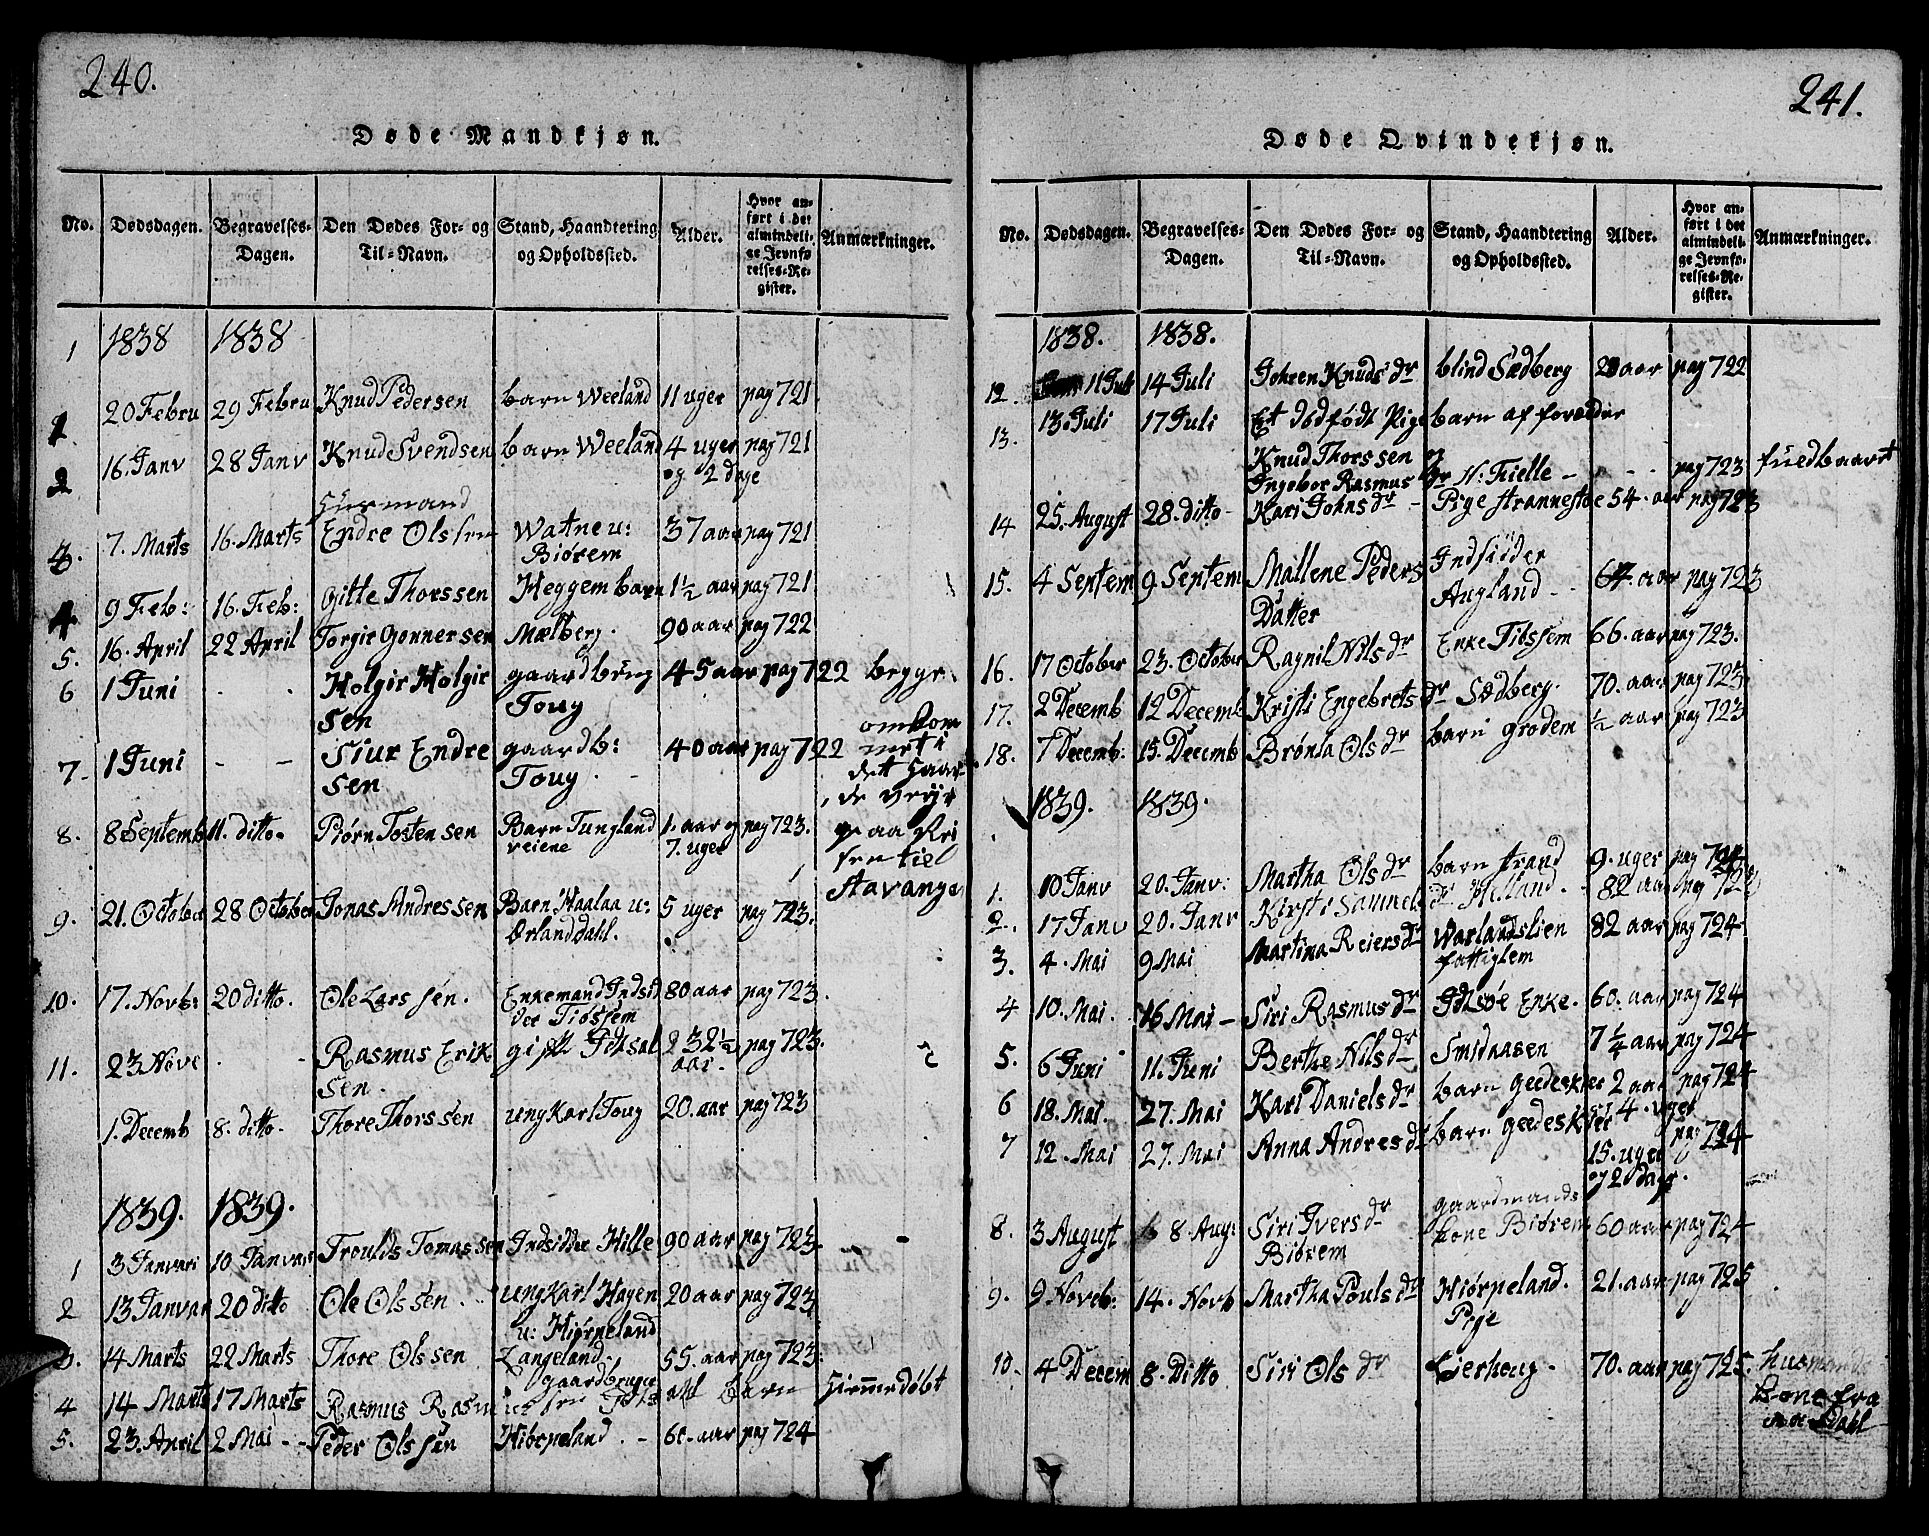 240.
Døde Mandkjøn.
No. Dødsdagen. Begravelses-Dagen. Den Dødes For- og Til-Navn. Stand, Haandtering og Opholdssted. Alder. Hvor anført i det almindelige Jevnførelses-Register. Anmærkninger.
1 1838 1838
1 20 Febru 29 Febru Knud Pedersen barn Weeland 11 uger pag 721
2 16. Janv 28 Janv Knud Svendsen barn Weeland 4 uger pag 721
og 2 dage
Huusmand
3. 7. Marts 16. Marts Endre Olssen Watne u: 37 aar pag 721
Biørem
4 9 Feb: 16. Feb: Gitle Thorssen Heggem barn 1½ aar pag 721
5. 16. April 22 April Torgir Gonnersen Mælberg. 90 aar pag 722
6 1 Juni - - Holgir Holgir gaardbrug 45 aar pag 722 begge
sen Toug omkom
7- 1 Juni - - Siur Endre gaardb: 40 aar pag 722 met i
sen Toug. - det haar
de veyr
8. 8 Septemb 11. ditto. Biørn Tosten sen Barn Tungland 1. aar og pag 723. paa Rei
veiene 7. uger sen til
Stavanger
9. 21. October 28 October Jonas Andressen Barn Haalaa u: 5 uger pag 723.
Ørlanddahl.
10. 17. Novb: 20 ditto. Ole Lars sen. Enkemand Indsid 80 aar pag 723.
der Tiøssem
11. 23 Nove - - Rasmus Erik gift Idsal 2 32½ pag 723.
sen. aar.
1. Decemb 8. ditto. Thore Thorssen ung Karl Toug 20. aar pag 723
1839. 1839.
1 3 Janvari 10 Janvar Troulds Tomassen Indsidder Hille 90 aar pag 723
2 13 Janvar 20 ditto Ole Olssen. ung Karl Hagen 20 aar pag 723
u: Hiørpeland
3. 14 Marts 22 Marts Thore Olssen Langeland 55. aar pag 723.
gaardbruger
4 14 Marts 17 Marts Rasmus Rasmussen barn Hiemmedøbt
5. 23. April 2 Mai - - Peder Olssen Hiørpeland. - 60. aar pag 724
241.
Døde Qvindekjøn.
No. Dødsdagen. Begravelses-Dagen. Den Dødes For- og Til-Navn. Stand, Haandtering og Opholdssted. Alder. Hvor anført i det almindelige Jevnførelses-Register. Anmærkninger.
1838. 1838.
12. 11 Juli 14 Juli Johren Knuds dr blind Sædberg aar pag 722
13. 13. Juli 17 Juli Et dødfødt Pige barn af forældre
Knud Thorssen og
Ingebor Rasmus dr N: Fielle - - - pag 723
14 25. August 28. ditto- Kari Johns dr - Pige strannestøe 54. aar pag 723
15. 4 Septem 9 Septem Mallene Peders Indsidder
Datter Augland - - 64. aar pag 723
16. 17 October 23. October Ragnil Nils dr Enke Tiøssem 66. aar pag 723.
17. 2 Decemb 12 Decemb Kristi Engebrets dr Sædberg. 70. aar pag 723
18. 7 Decemb: 15. Decemb Brønla Ols dr barn Grødem ½ aar pag 723
1839. 1839.
1. 10 Janv 20. Janv: Martha Ols dr barn strand 9. uger pag 724
2. 17 Janv 20. Janv Kirsti Samuels dr Helland. 82 aar pag 724
3. 4. Mai 9 Mai Martina Reiers dr Warlandslien 82 aar pag 724
fattiglem
4 10. Mai. 16 Mai - Siri Rasmus dr Idsøe Enke. 60. aar pag 724
5. 6 Juni 11. Juni Berthe Nils dr Smidaasen 7¼ aar pag 724
6 18. Mai. 27. Mai Kari Daniels dr barn Geedeskier 2 aar pag 724
7 12. Mai 27. Mai Anna Andres dr barn Geedeskier 4. uger
15. uger pag 724
og 2 dage.
8. 3 August 8 Aug: Siri Ivers dr gaardmands
Biørem Kone Biørem 60 aar pag 724
9. 9 Noveb: 14. Novb Martha Pouls dr Hiørpeland. 21. aar pag 725
Pige
10. 4 Decem 8. Ditto Siri Ols dr Lierhoug. 70. aar pag 725. husmands
Kone fra
Dahl